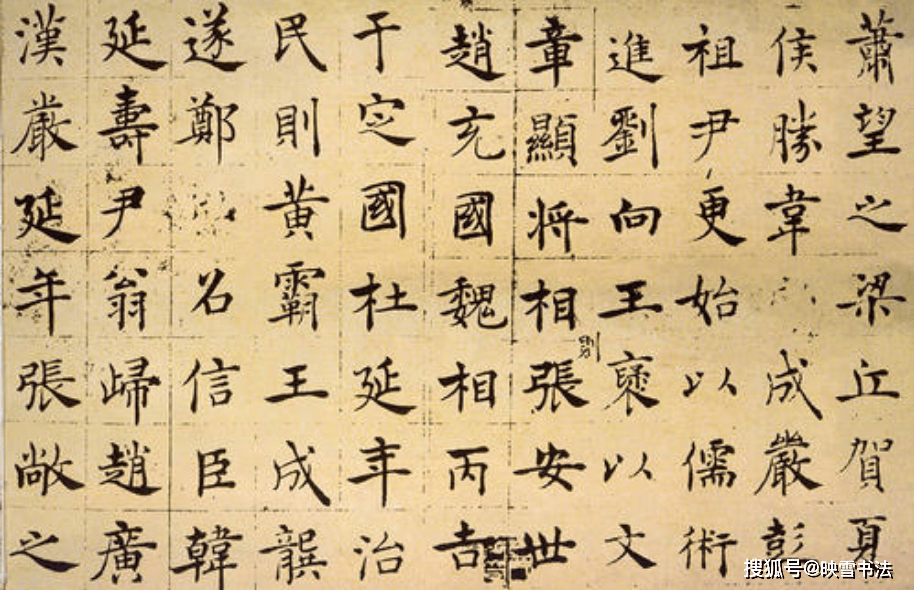 蕭望之梁丘賀夏
侯勝韋成嚴彭
祖尹更始以儒術
進劉向王褒以文
章顯將相張安世
趙充國魏相丙吉
于定國杜延年治
民則黃霸王成龔
遂鄭召信臣韓
延壽尹翁歸趙廣
漢嚴延年張敞之
搜狐号@映雪书法